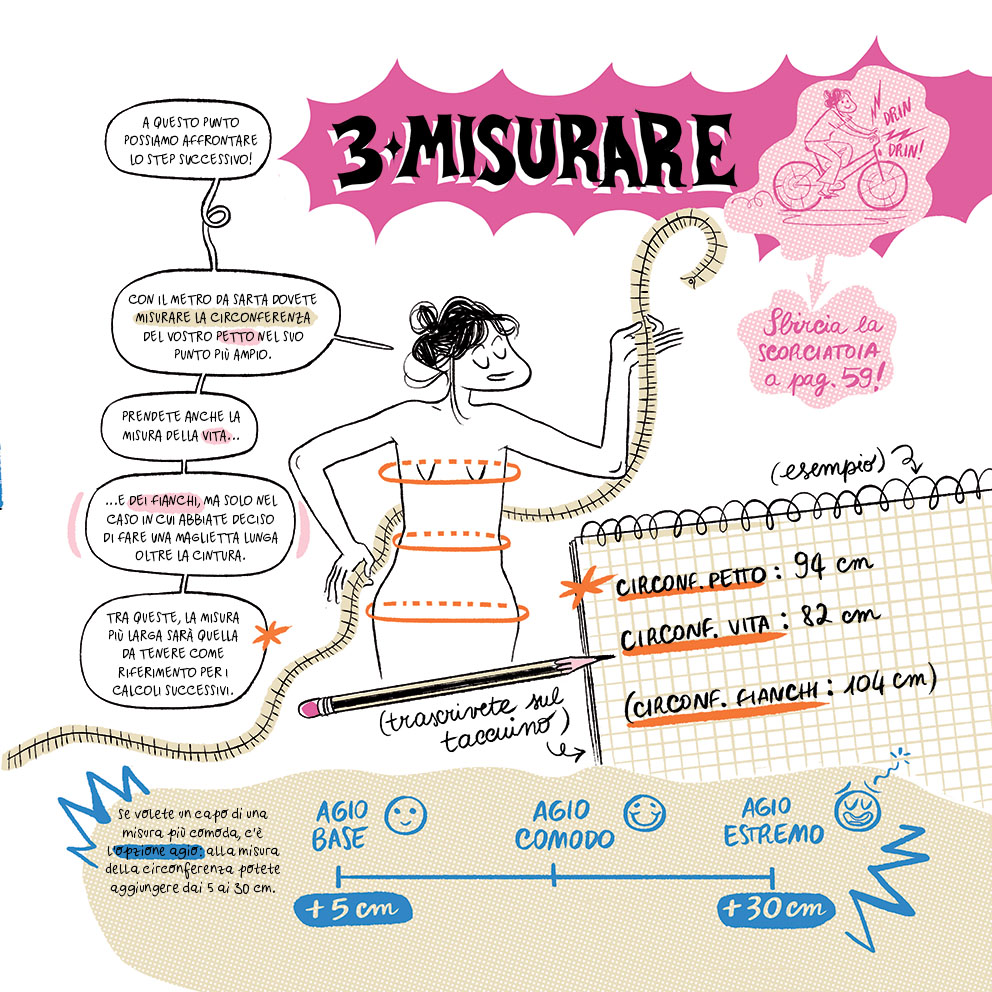 3 MISURARE
DRIN
DRIN!
Sbircia la
SCORCIATOIA
a pag. 59!
A QUESTO PUNTO
POSSIAMO AFFRONTARE
LO STEP SUCCESSIVO!
CON IL METRO DA SARTA DOVETE
MISURARE LA CIRCONFERENZA
DEL VOSTRO PETTO NEL SUO
PUNTO PIÙ AMPIO.
PRENDETE ANCHE LA
MISURA DELLA VITA...
...E DEI FIANCHI, MA SOLO NEL
CASO IN CUI ABBIATE DECISO
DI FARE UNA MAGLIETTA LUNGA
OLTRE LA CINTURA.
TRA QUESTE, LA MISURA
PIÙ LARGA SARÀ QUELLA
DA TENERE COME
RIFERIMENTO PER I
CALCOLI SUCCESSIVI.
(esempio)
CIRCONF. PETTO: 94 cm
CIRCONF. VITA: 82 cm
(CIRCONF. FIANCHI: 104 cm)
(trascrivete sul
taccuino)
Se volete un capo di una
misura più comoda, c'è
l'opzione agio: alla misura
della circonferenza potete
aggiungere dai 5 ai 30 cm.
AGIO
BASE
AGIO
COMODO
AGIO
ESTREMO
+5 cm
+30 cm